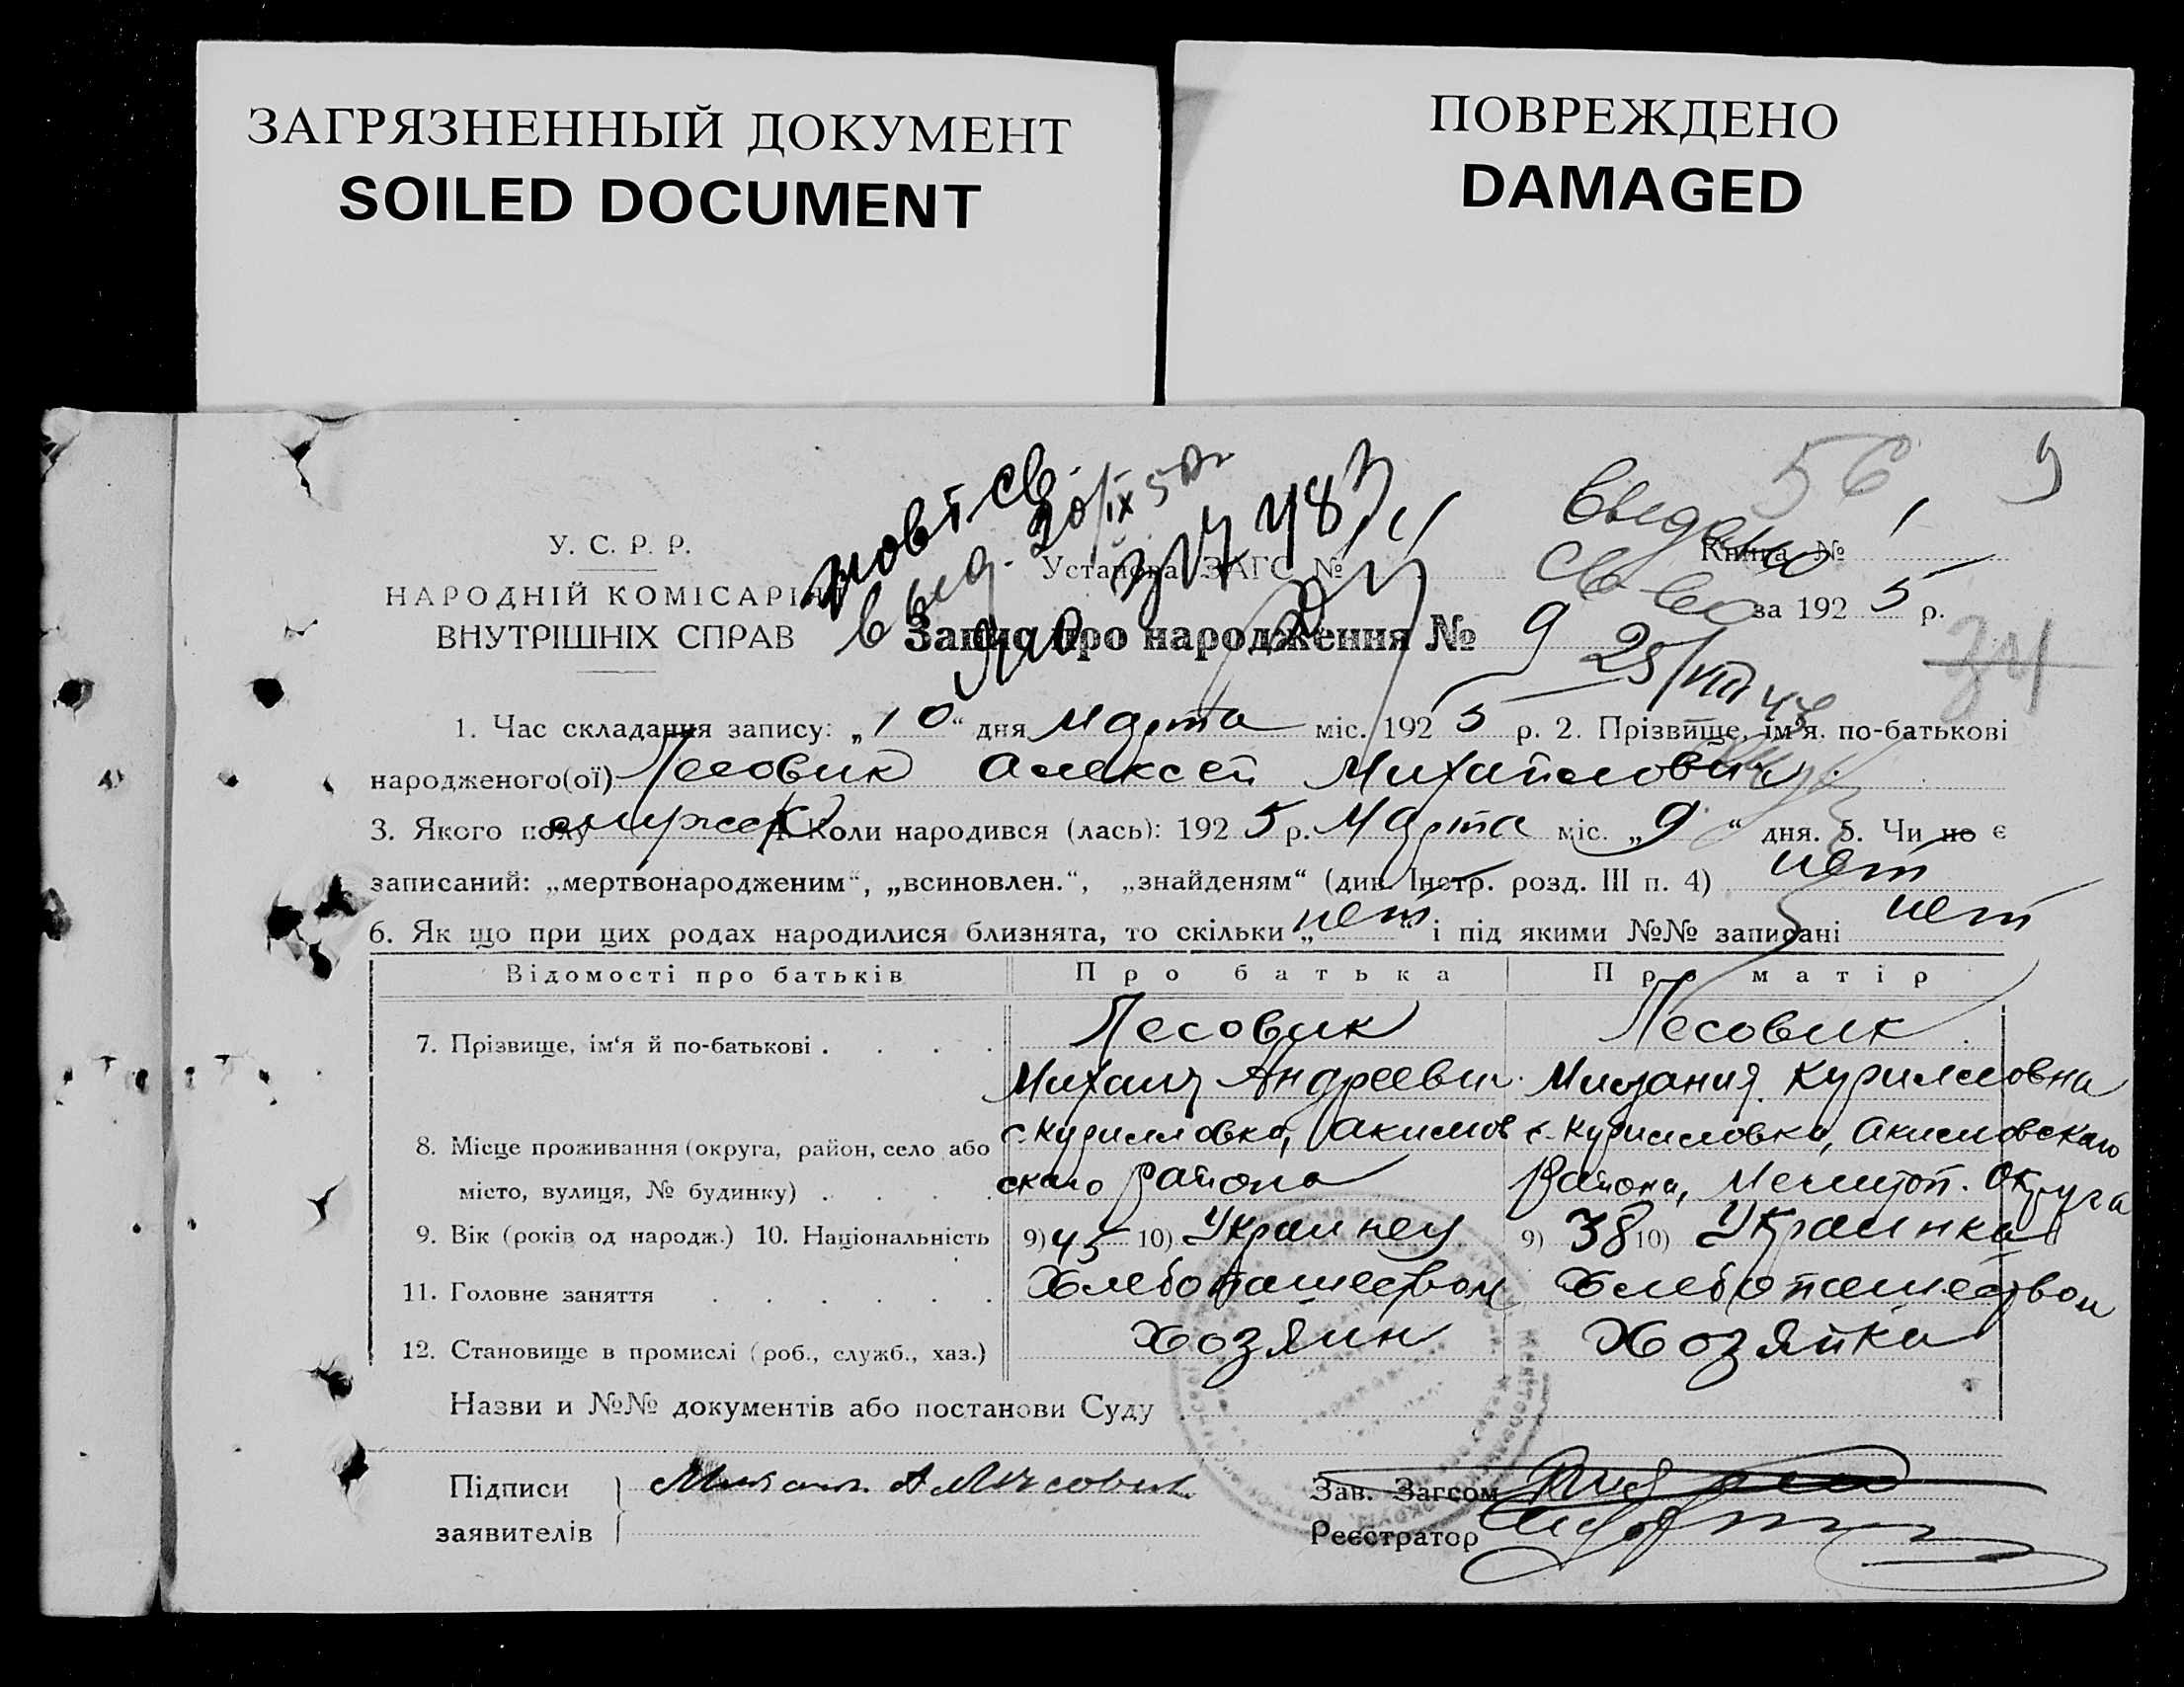 ЗАГРЯЗНЕННЫЙ ДОКУМЕНТ
SOILED DOCUMENT
ПОВРЕЖДЕНО
DAMAGED
56 9
повт. св.
выд. 20/IX 50г
ЯЮ 483
Выдано
св-во
25/VIII
34
У. С. Р. Р.
НАРОДНІЙ КОМІСАРІЯТ
ВНУТРІШНІХ СПРАВ
Установа ЗАГС №
Книга № 1
за 192 5 р.
Запис про народження № 9
1. Час складання запису: „10“ дня Марта міс. 192 5 р. 2. Прізвище, ім'я, по-батькові
народженого(ої) Лесовик Алексей Михайлович
3. Якого полу мужск. 4. Коли народився (лась): 192 5 р. Марта міс. „9“ дня. 5. Чи не є
записаний: „мертвонародженим“, „всиновлен.“, „знайденям“ (див. Інстр. розд. III п. 4) нет
6. Як що при цих родах народилися близнята, то скільки „нет“ і під якими №№ записані нет
Відомості про батьків Про батька Про матір
7. Прізвище, ім‘я й по-батькові . . . . Лесовик Лесовик
Михаил Андреевич Мелания Курилловна
8. Місце проживання (округа, район, село або с. Курилловка, Акимов с. Курилловка, Акимовского
місто, вулиця, № будинку) . . . . ского района Района, Мелитоп. Округа
9. Вік (років од народж.) 10. Національність 9) 45 10) Украинец 9) 38 10) Украинка
11. Головне заняття . . . . . . Хлебопашеством Хлебопашеством
12. Становище в промислі (роб., служб., хаз.) Хозяин Хозяйка
Назви и №№ документів або постанови Суду
Підписи
заявителів
Михаил А Лесовик
Зав. Загсом
Реєстратор